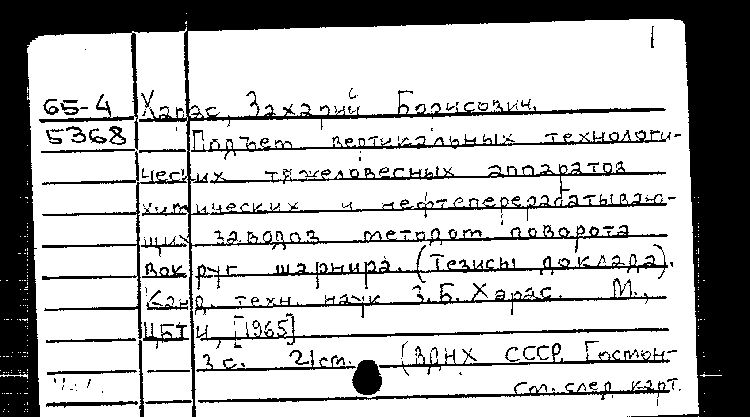 1
65-4 Харас, Захарий Борисович.
5368 Подъем вертикальных технологи-
ческих тяжеловесных аппаратов
химических и нефтеперерабатываю-
щих заводов методом поворота
вокруг шарнира. (Тезисы доклада).
Канд. техн. наук З.Б. Харас. М.,
ЦБТИ, [1965]
3 с. 21 см. (ВДНХ СССР. Госмон-
См. след. карт.